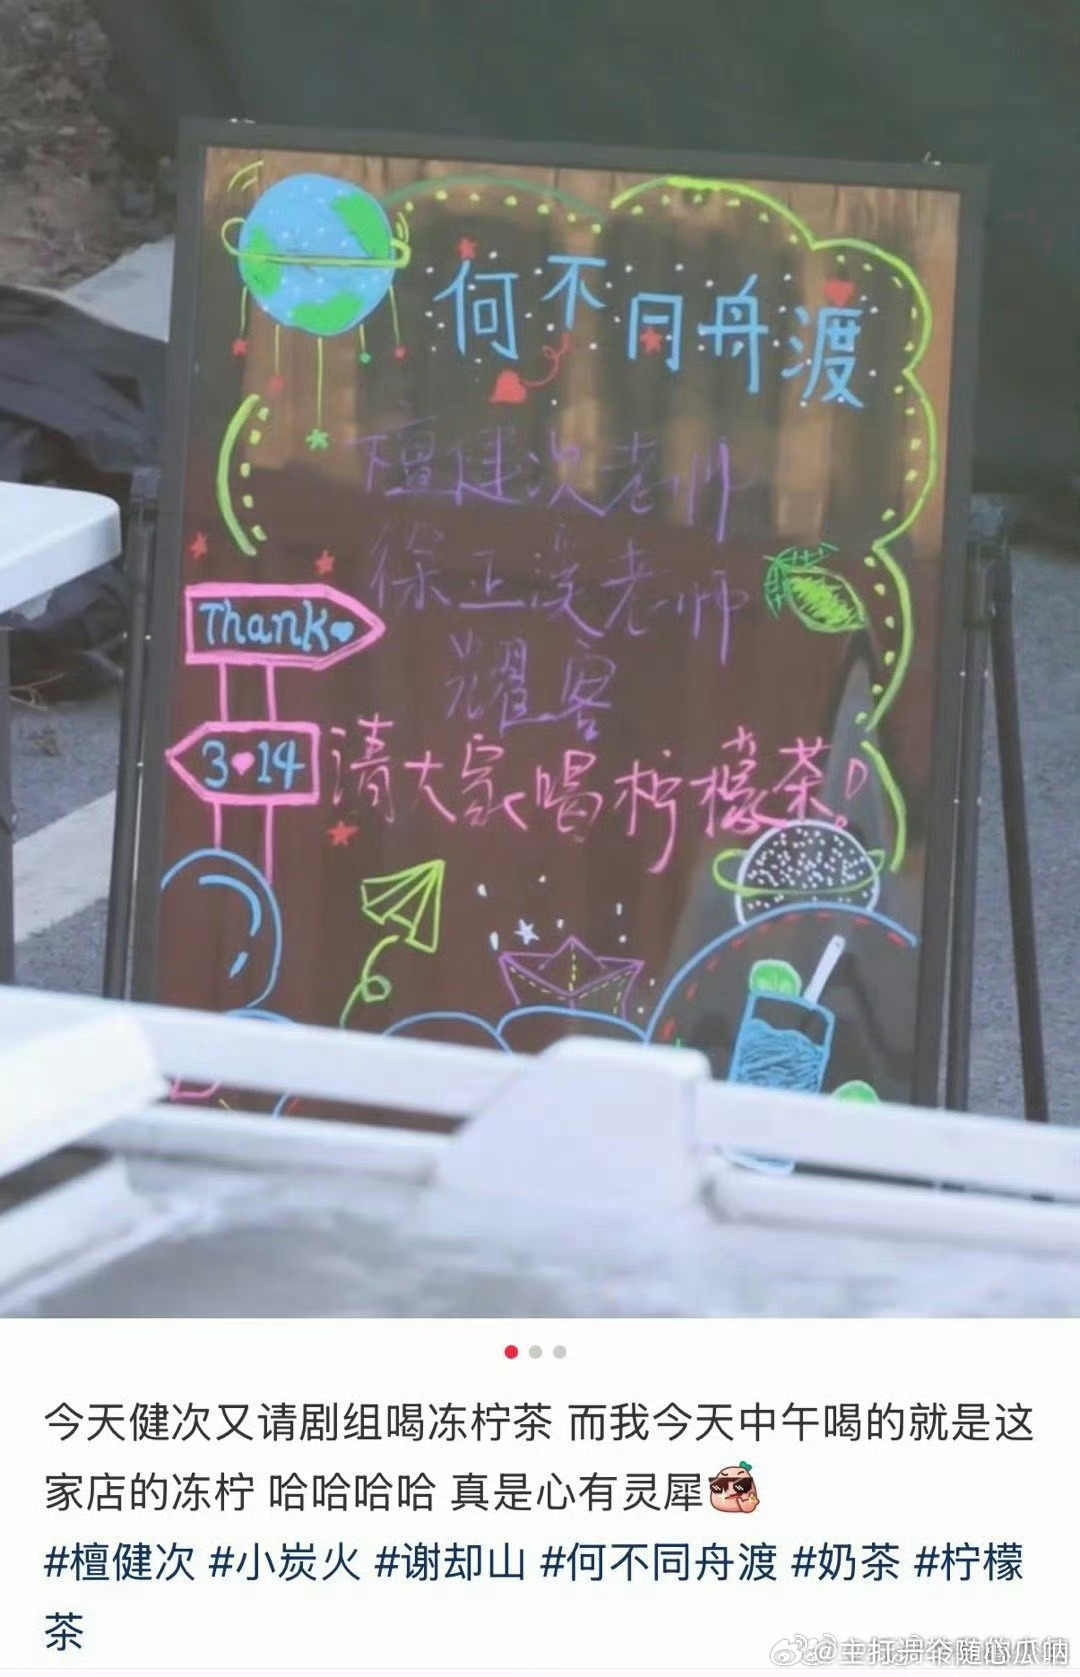 何不同舟渡
檀健次老师
徐正溪老师
耀客
Thank
3 14
请大家喝柠檬茶!
今天健次又请剧组喝冻柠茶 而我今天中午喝的就是这
家店的冻柠 哈哈哈哈 真是心有灵犀
#檀健次 #小炭火 #谢却山 #何不同舟渡 #奶茶 #柠檬
茶